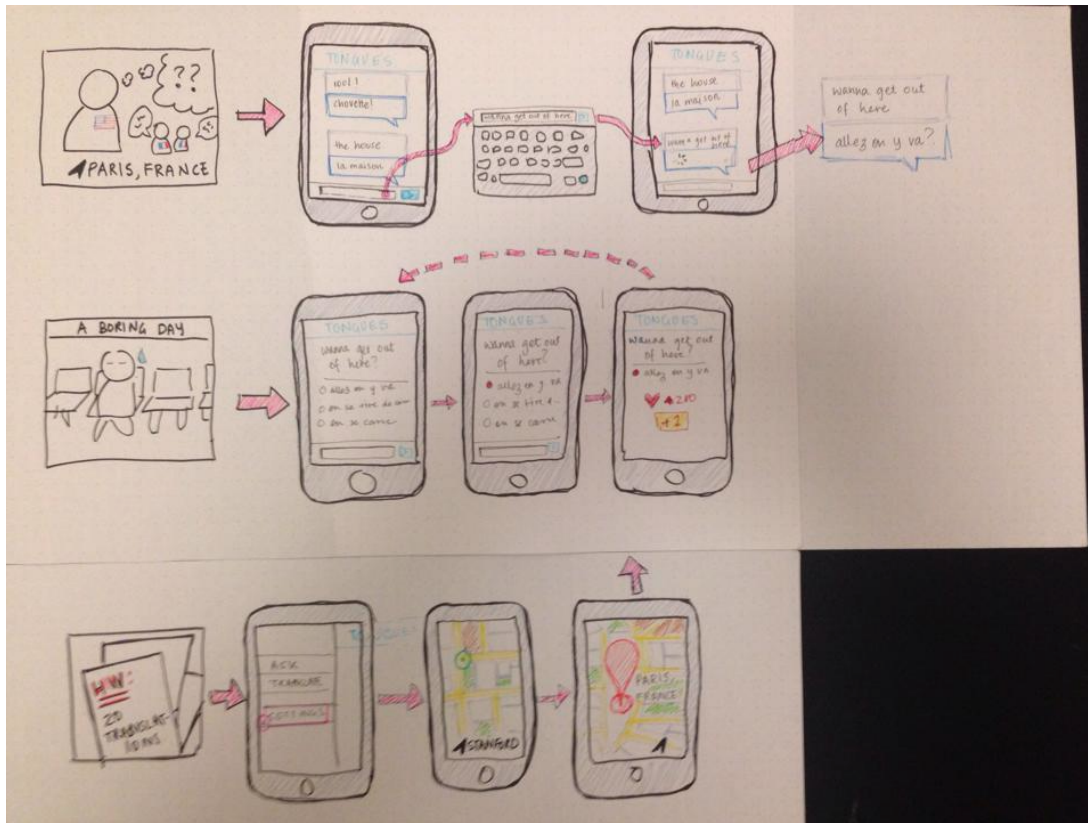 ??
PARIS, FRANCE
TONGUES
cool!
chouette!
the house
la maison
wanna get out of here
TONGUES
the house
la maison
wanna get out of
here
wanna get out
of here
allez on y va?
A BORING DAY
TONGUES
wanna get out
of here?
allez on y va
on se tire de
on se casse
TONGUES
wanna get out
of here?
allez on y va
on se tire
on se casse
TONGUES
wanna get out
of here?
allez on y va
200
+2
HW:
20
TRANSLAT-
IONS
TONGUE
ASK
TRANSLATE
SETTINGS
STANFORD
PARIS,
FRANCE